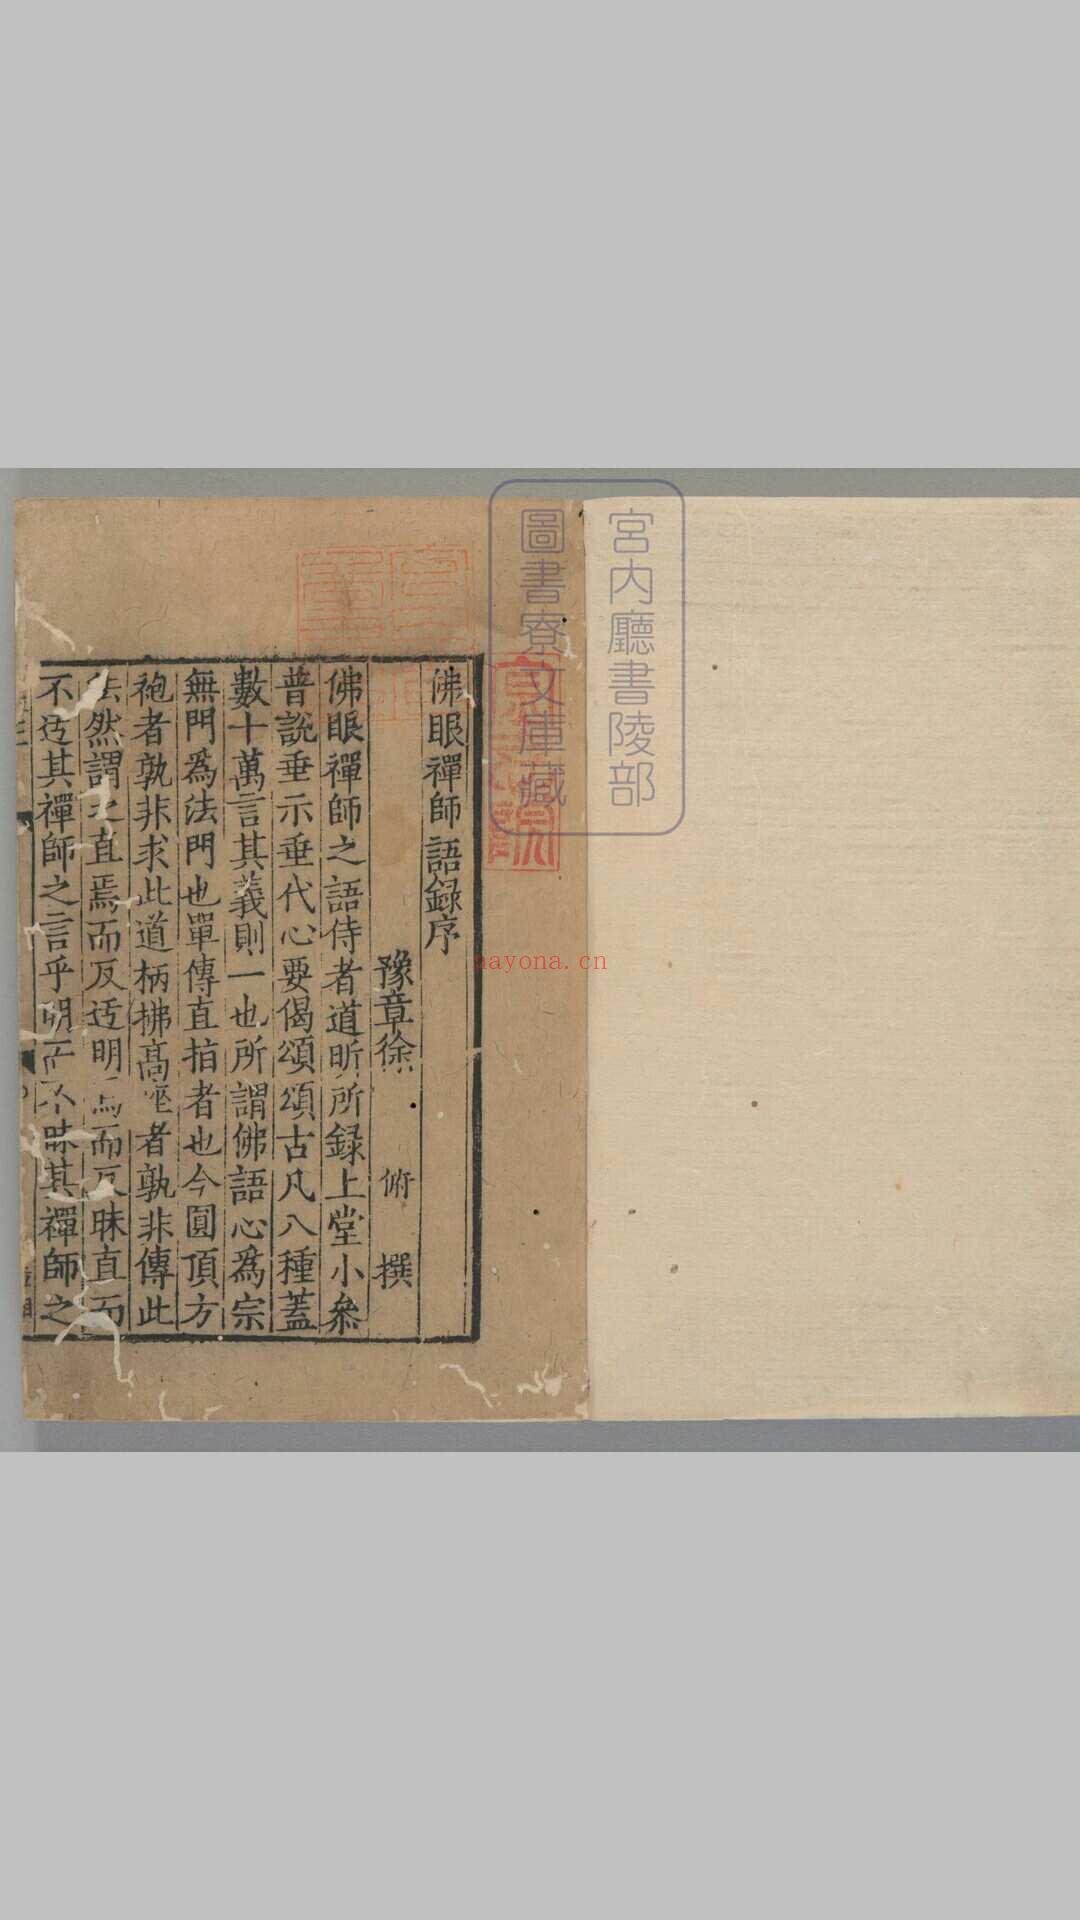 宮内廳書陵部
圖書寮文庫藏
佛眼禪師語録序
豫章徐俯撰
佛眼禪師之語侍者道昕所録上堂小叅
普説垂示垂代心要偈頌頌古凡八種蓋
數十萬言其義則一也所謂佛語心爲宗
無門爲法門也單傳直指者也今圓頂方
袍者孰非求此道柄拂髙座者孰非傳此
法然謂之直焉而反迃明焉而反昧直而
不迃其禪師之言乎明而不昧其禪師之
aayona.cn